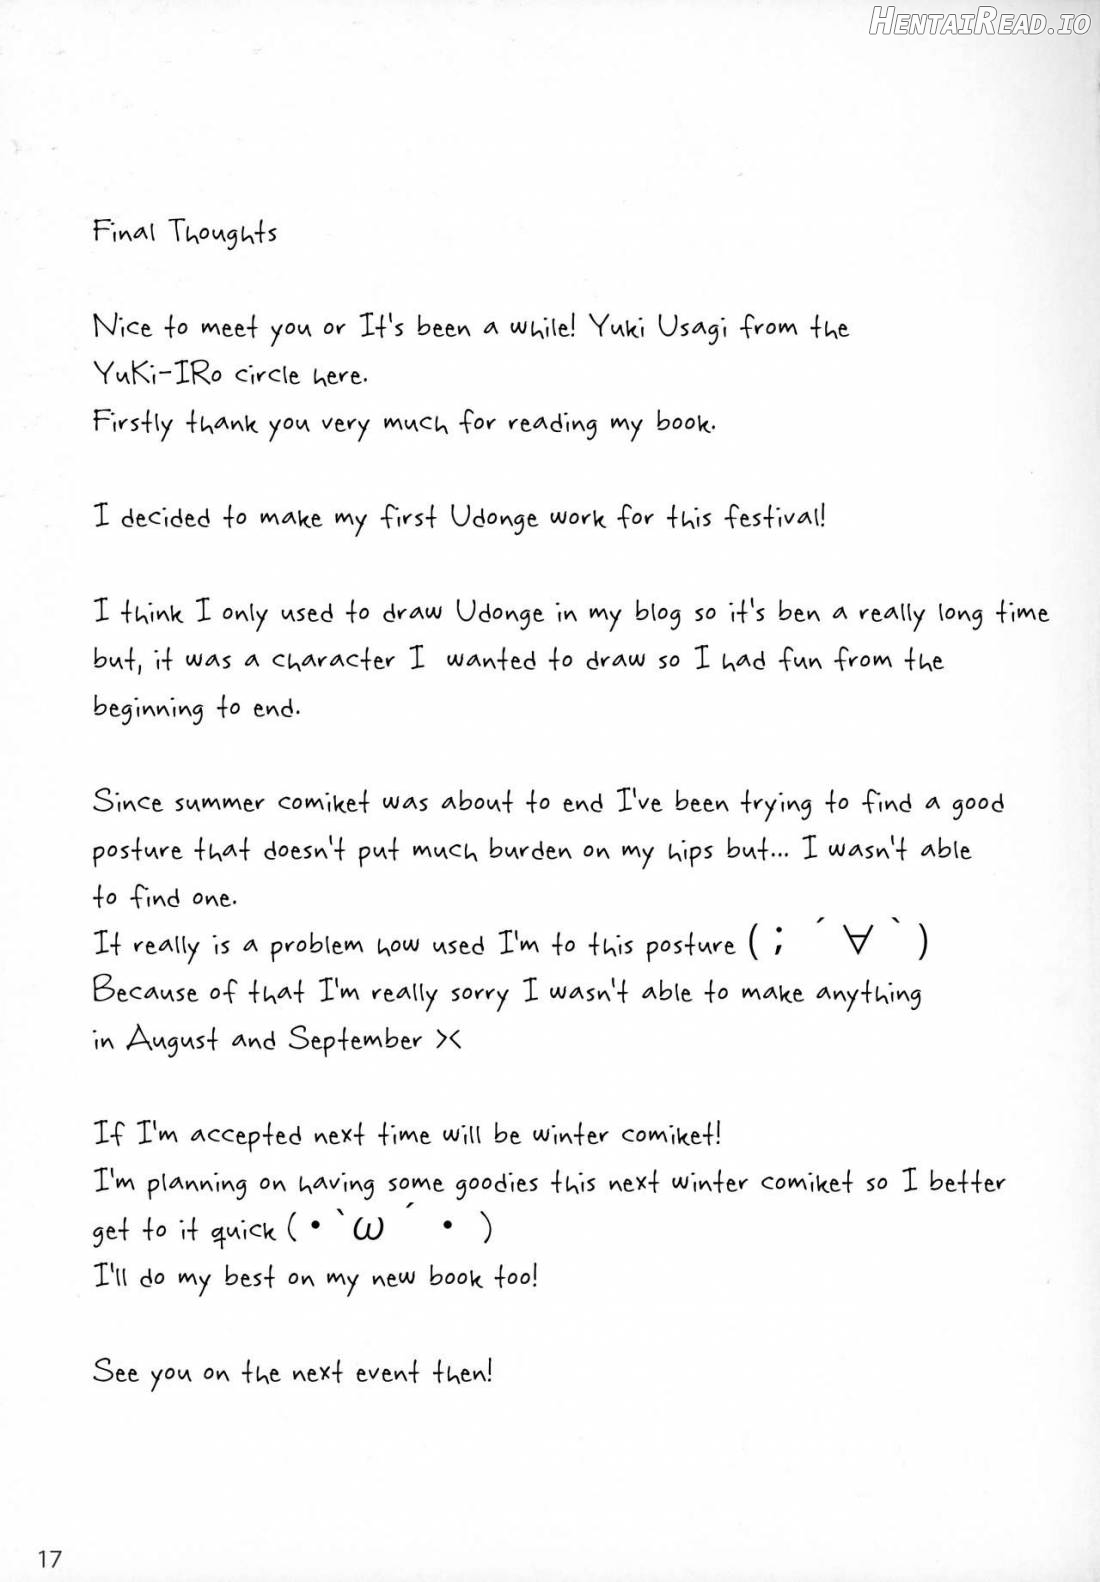 HentaiRead.io
Final Thoughts
Nice to meet you or It's been a while! Yuki Usagi from the
YuKi-IRo circle here.
Firstly thank you very much for reading my book.
I decided to make my first Udonge work for this festival!
I think I only used to draw Udonge in my blog so it's ben a really long time
but, it was a character I wanted to draw so I had fun from the
beginning to end.
Since summer comiket was about to end I've been trying to find a good
posture that doesn't put much burden on my hips but... I wasn't able
to find one.
It really is a problem how used I'm to this posture (；´∀｀)
Because of that I'm really sorry I wasn't able to make anything
in August and September ><
If I'm accepted next time will be winter comiket!
I'm planning on having some goodies this next winter comiket so I better
get to it quick (・`ω´・)
I'll do my best on my new book too!
See you on the next event then!
17